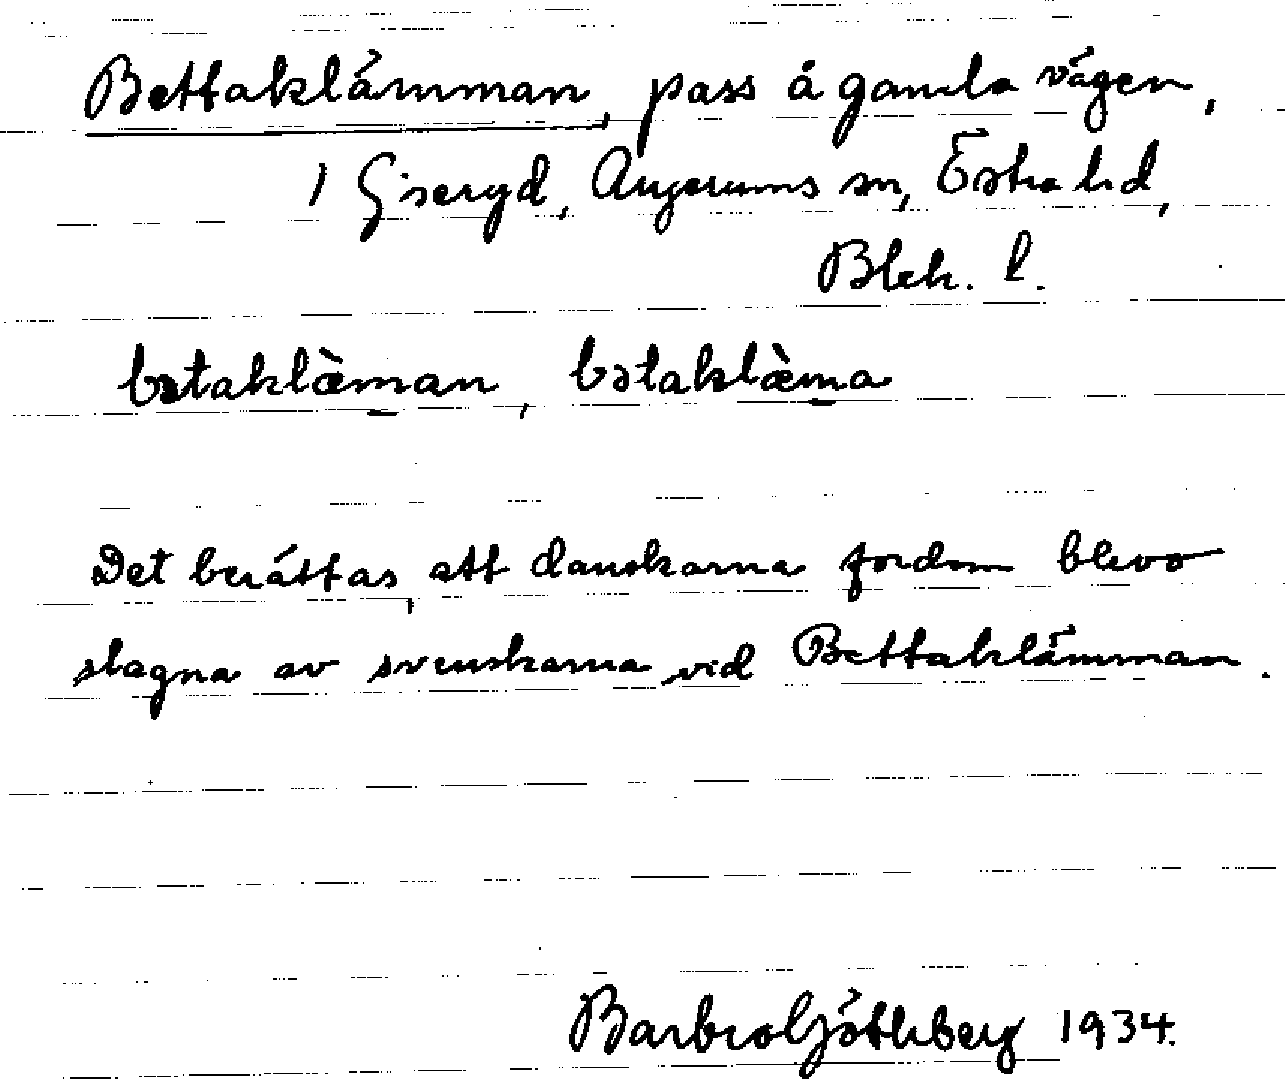 Bettaklämman, pass å gamla vägen,
i Giseryd, Augerums sn, Östra hd,
Blek. l.
bətaklæ̀man, bətaklæ̀ma
Det berättas, att danskarna fordom blevo
slagna av svenskarna vid Bettaklämman.
Barbro Göthberg 1934.